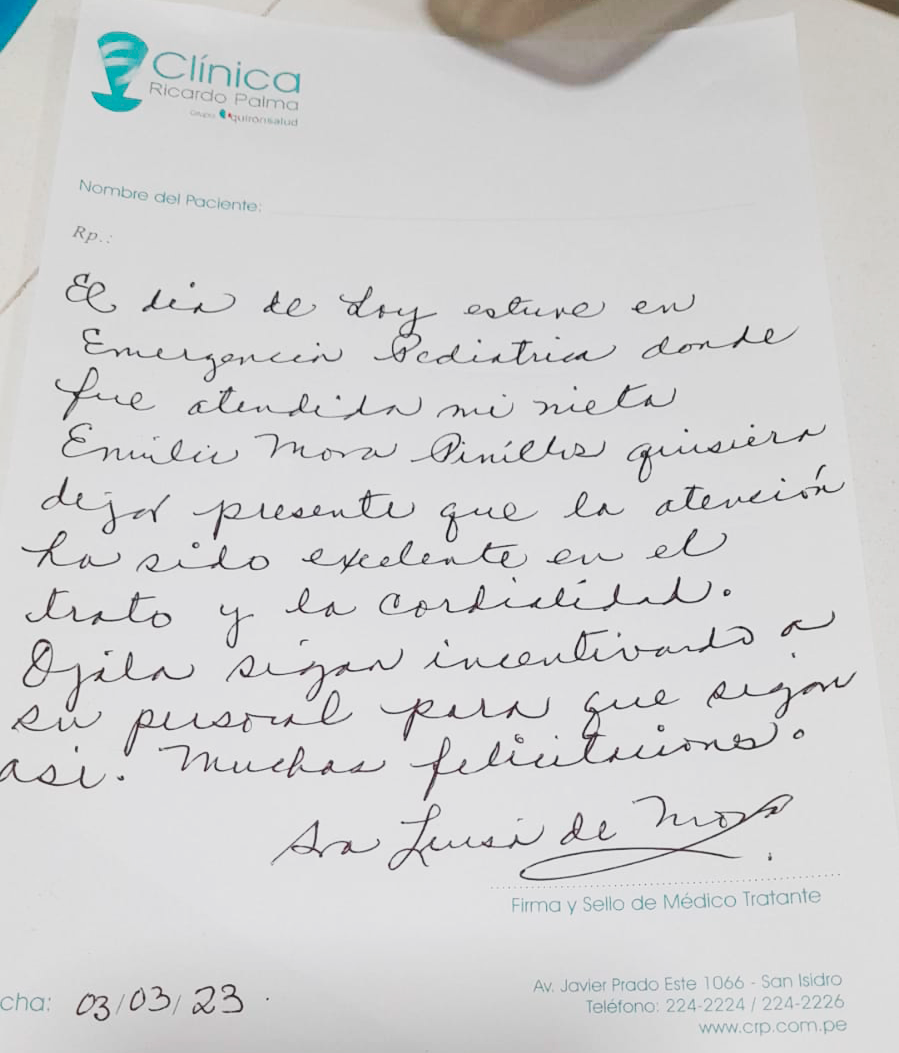 Clínica
Ricardo Palma
Grupo quironsalud
Nombre del Paciente:
Rp.:
El dia de hoy estuve en
Emergencia Pediatrica donde
fue atendida mi nieta
Emilia Mora Pinillos quisiera
dejar presente que la atención
ha sido exelente en el
trato y la cordialidad.
Ojala sigan incentivando a
su personal para que sigan
asi. Muchas felicitaciones.
Sra Luisa de Mora
Firma y Sello de Médico Tratante
cha: 03/03/23
Av. Javier Prado Este 1066 - San Isidro
Teléfono: 224-2224 / 224-2226
www.crp.com.pe